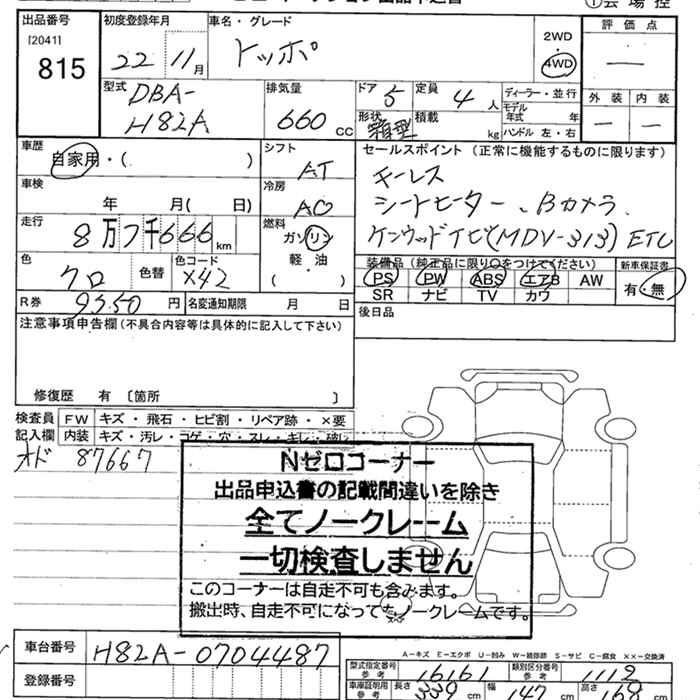 出品番号 初度登録年月 車名・グレード 評価点
[2041] 815 22年 11月 トッポ 2WD 4WD
外装 内装
型式 DBA-H82A 排気量 660 CC ドア 5 定員 4人 ディーラー・並行
形状 箱型 積載 kg モデル年式 年 ハンドル 左・右
車歴 自家用・( ) シフト AT セールスポイント (正常に機能するものに限ります)
車検 年 月( 日) 冷房 AC キーレス
シートヒーター、Bカメラ
走行 8万7千666km 燃料 ガソリン 軽・油 ( ) ケンウッドナビ(MDV-313) ETC
色 クロ 色替 色コード X42 装備品 (純正品に限り○をつけてください) 新車保証書
PS PW ABS エアB AW 有・無
SR ナビ TV カワ
R券 9350円 名変通知期限 月 日 後日品
注意事項申告欄 (不具合内容等は具体的に記入して下さい)
修復歴 有 〔箇所 〕
検査員 FW キズ・飛石・ヒビ割・リペア跡・×要
記入欄 内装 キズ・汚レ・コゲ・穴・スレ・キレ・破レ
オド 87667
Nゼロコーナー
出品申込書の記載間違いを除き
全てノークレーム
一切検査しません
このコーナーは自走不可も含みます。
搬出時、自走不可になってもノークレームです。
車台番号 H82A-0704487
登録番号
A-キズ E-エクボ U-凹み W-補修跡 S-サビ C-腐食 XX-交換済
型式指定番号 参考 16161 類別区分番号 参考 1112
車庫証明用 参考 長さ 339cm 幅 147cm 高さ 168cm